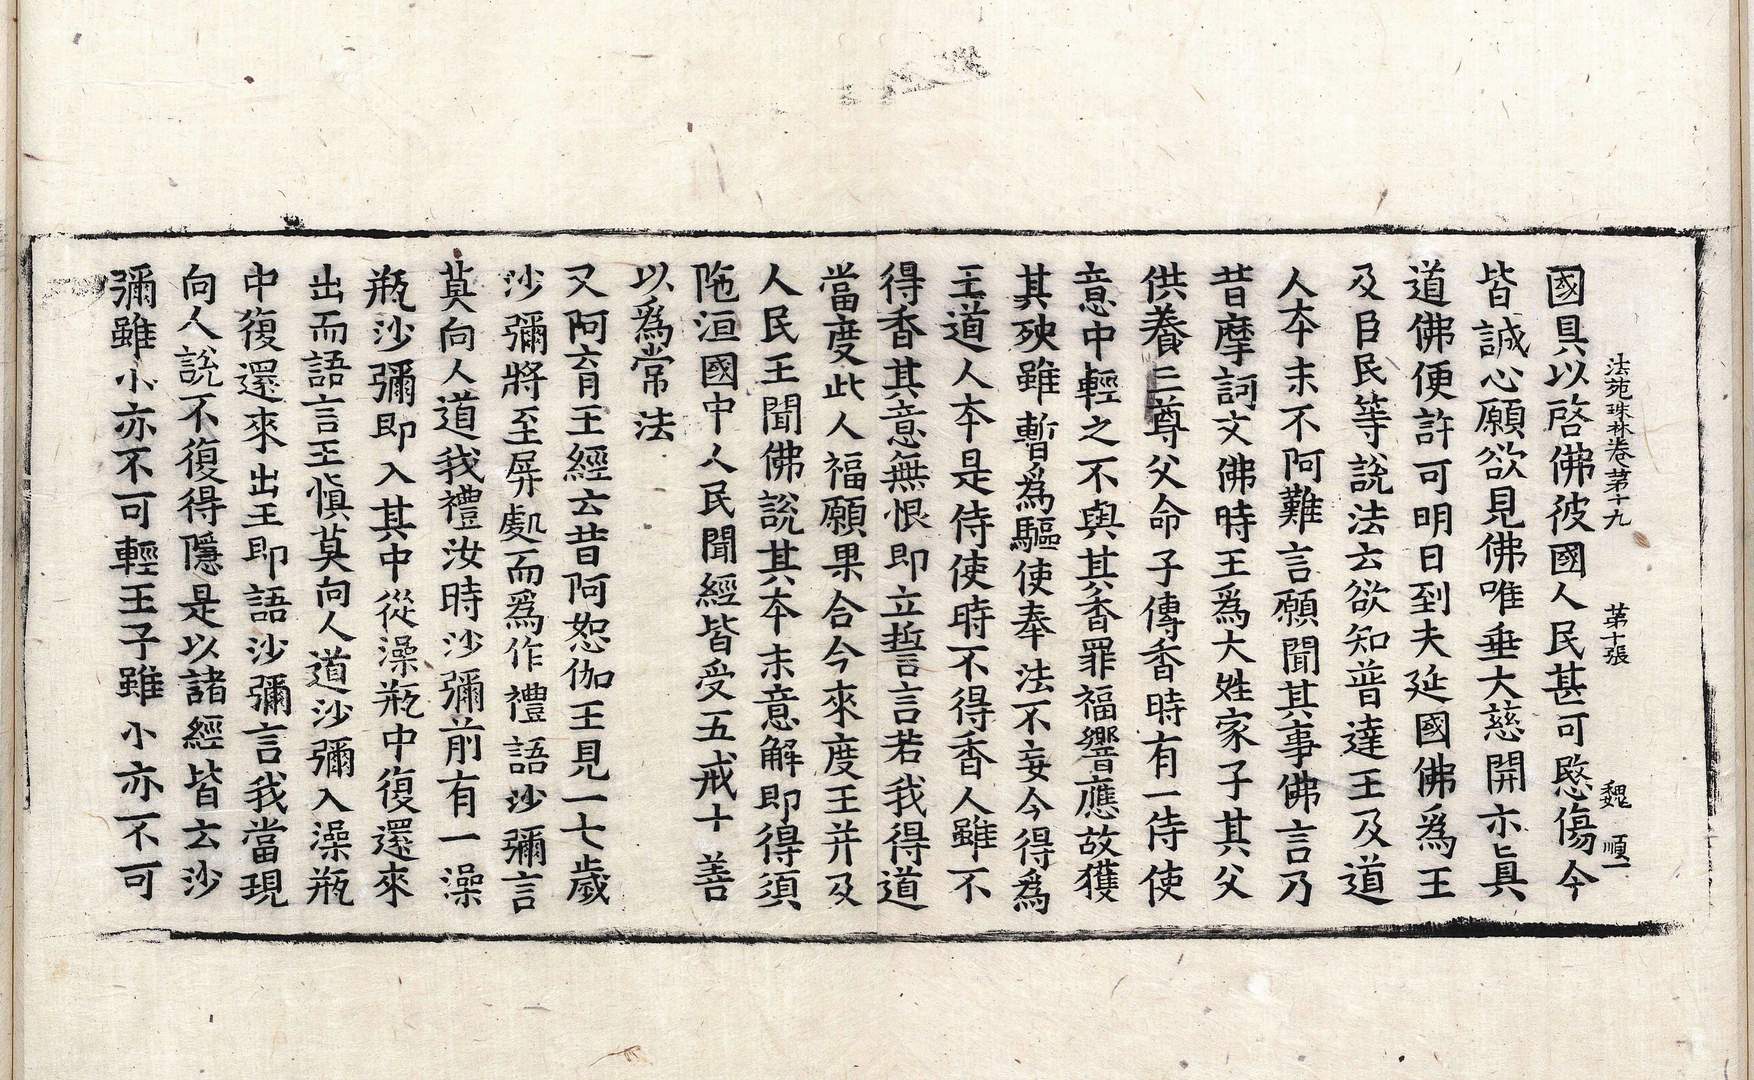 法苑珠林卷第十九 第十張 魏 順一
國具以啓佛彼國人民甚可愍傷今
皆誠心願欲見佛唯垂大慈開示真
道佛便許可明日到夫延國佛爲王
及臣民等說法云欲知普達王及道
人本末不阿難言願聞其事佛言乃
昔摩訶文佛時王爲大姓家子其父
供養三尊父命子傳香時有一侍使
意中輕之不與其香罪福響應故獲
其殃雖暫爲驅使奉法不妄今得爲
王道人本是侍使時不得香人雖不
得香其意無恨即立誓言若我得道
當度此人福願果合今來度王并及
人民王聞佛說其本末意解即得須
陁洹國中人民聞經皆受五戒十善
以爲常法
又阿育王經云昔阿恕伽王見一七歲
沙彌將至屏處而爲作禮語沙彌言
莫向人道我禮汝時沙彌前有一澡
瓶沙彌即入其中從澡瓶中復還來
出而語言王愼莫向人道沙彌入澡瓶
中復還來出王即語沙彌言我當現
向人說不復得隱是以諸經皆云沙
彌雖小亦不可輕王子雖小亦不可